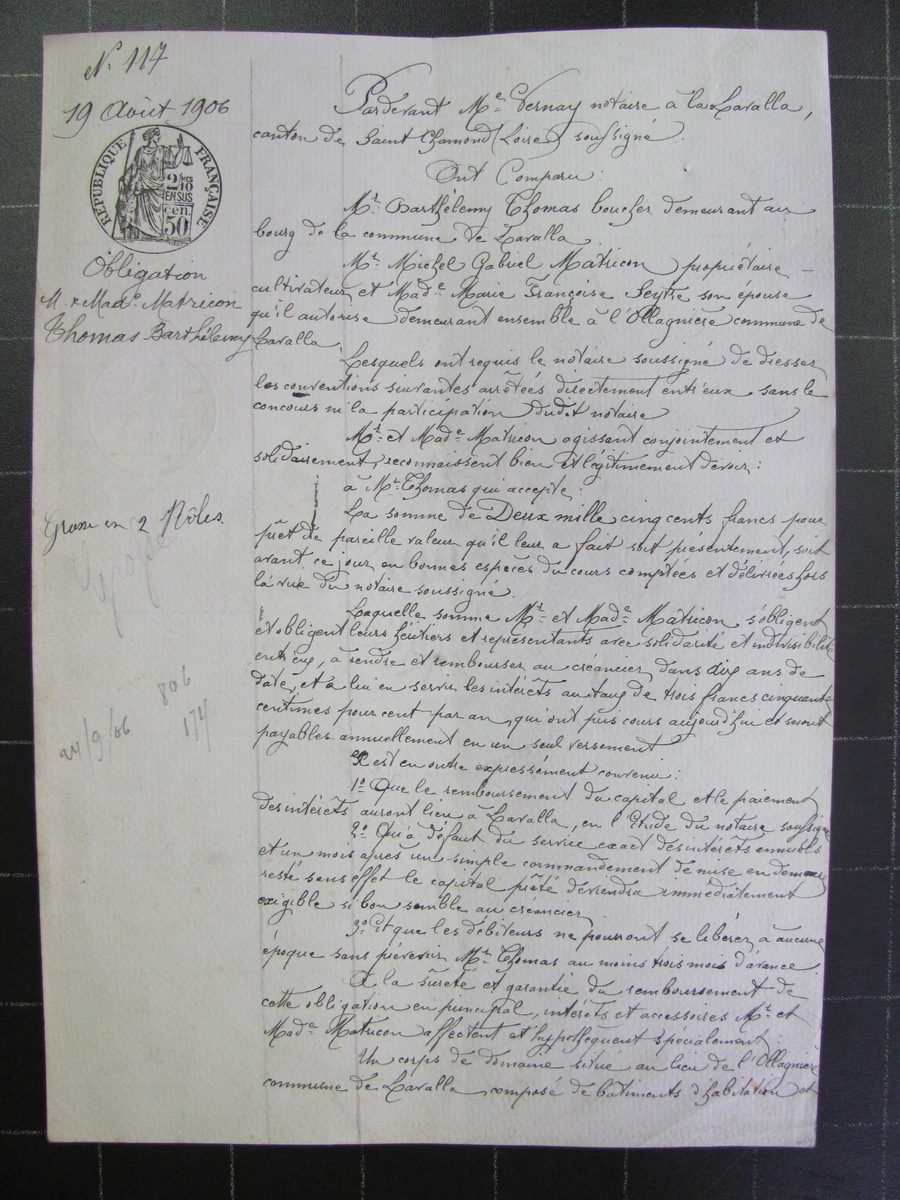 N° 117
19 Août 1906
RÉPUBLIQUE FRANÇAISE
2/10 EN SUS
50 cen.
Obligation
M. & Made Matricon
Thomas Barthélemy
Grosse en 2 Rôles.
806
174
24/9/06
Pardevant Me Vernay notaire à la Lavalla,
canton de Saint Chamond (Loire) soussigné.
Ont Comparu:
Mr Barthélemy Thomas boucher demeurant au
bourg de la commune de Lavalla
Mr Michel Gabriel Matricon, propriétaire -
cultivateur, et Made Marie Françoise Seytre son épouse
qu'il autorise demeurant ensemble à l'Ollagnière commune de
Lavalla
Lesquels ont requis le notaire soussigné de dresser
les conventions suivantes arrêtées directement entr'eux sans le
concours ni la participation dudit notaire
Mr et Made Matricon agissant conjointement et
solidairement, reconnaissent bien et légitimement devoir:
à Mr Thomas qui accepte:
La somme de Deux mille cinq cents francs pour
prêt de pareille valeur qu'il leur a fait soit présentement, soit
avant ce jour en bonnes espèces du cours comptées et délivrées hors
la vue du notaire soussigné.
Laquelle somme Mr et Made Matricon s'obligent
et obligent leurs héritiers et représentants avec solidarité et indivisibilité
entr'eux, à rendre et rembourser au créancier dans dix ans de
date, et à lui en servir les intérêts au taux de trois francs cinquante
centimes pour cent par an, qui ont pris cours aujourd'hui et seront
payables annuellement en un seul versement
Il est en outre expressément convenu:
1° Que le remboursement du capital et le paiement
des intérêts auront lieu à Lavalla, en l'étude du notaire soussigné
2° Qu'à défaut du service exact des intérêts annuels
et un mois après un simple commandement de mise en demeure
resté sans effet le capital prêté deviendra immédiatement
exigible si bon semble au créancier
3° Et que les débiteurs ne pourront se libérer à aucune
époque sans prévenir Mr Thomas au moins trois mois d'avance
A la sûreté et garantie du remboursement de
cette obligation en principal, intérêts et accessoires Mr et
Made Matricon affectent et hypothèquent spécialement:
Un corps de domaine situé au lieu de l'Ollagnière
commune de Lavalla, composé de bâtiments d'habitation et